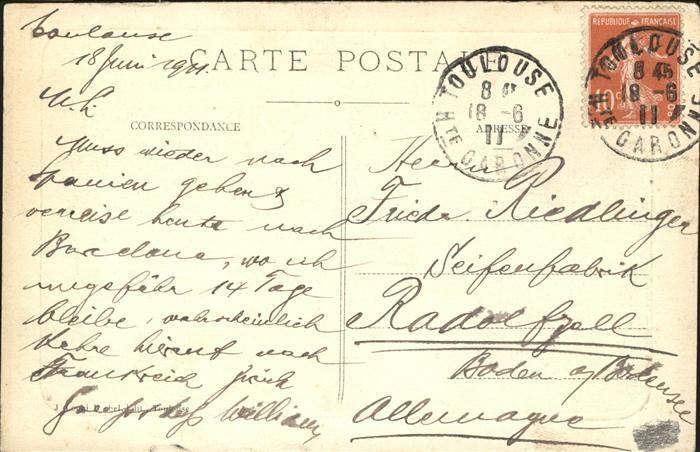 Toulouse
18 Juni 1911.
CARTE POSTALE
CORRESPONDANCE
ADRESSE
M. L.
Muss wieder nach
Spanien gehen &
verreise heute nach
Barcelona, wo ich
ungefähr 14 Tage
bleibe, wahrscheinlich
kehre hierauf nach
Frankreich zurück
William
Toulouse
Herrn
Friedr. Riedlinger
Seifenfabrik
Radolfzell
Baden a/Bodensee
Allemagne
TOULOUSE
8 45
18 - 6
11
HTE GARONNE
RÉPUBLIQUE FRANÇAISE
10
TOULOUSE
8 45
18 - 6
11
HTE GARONNE